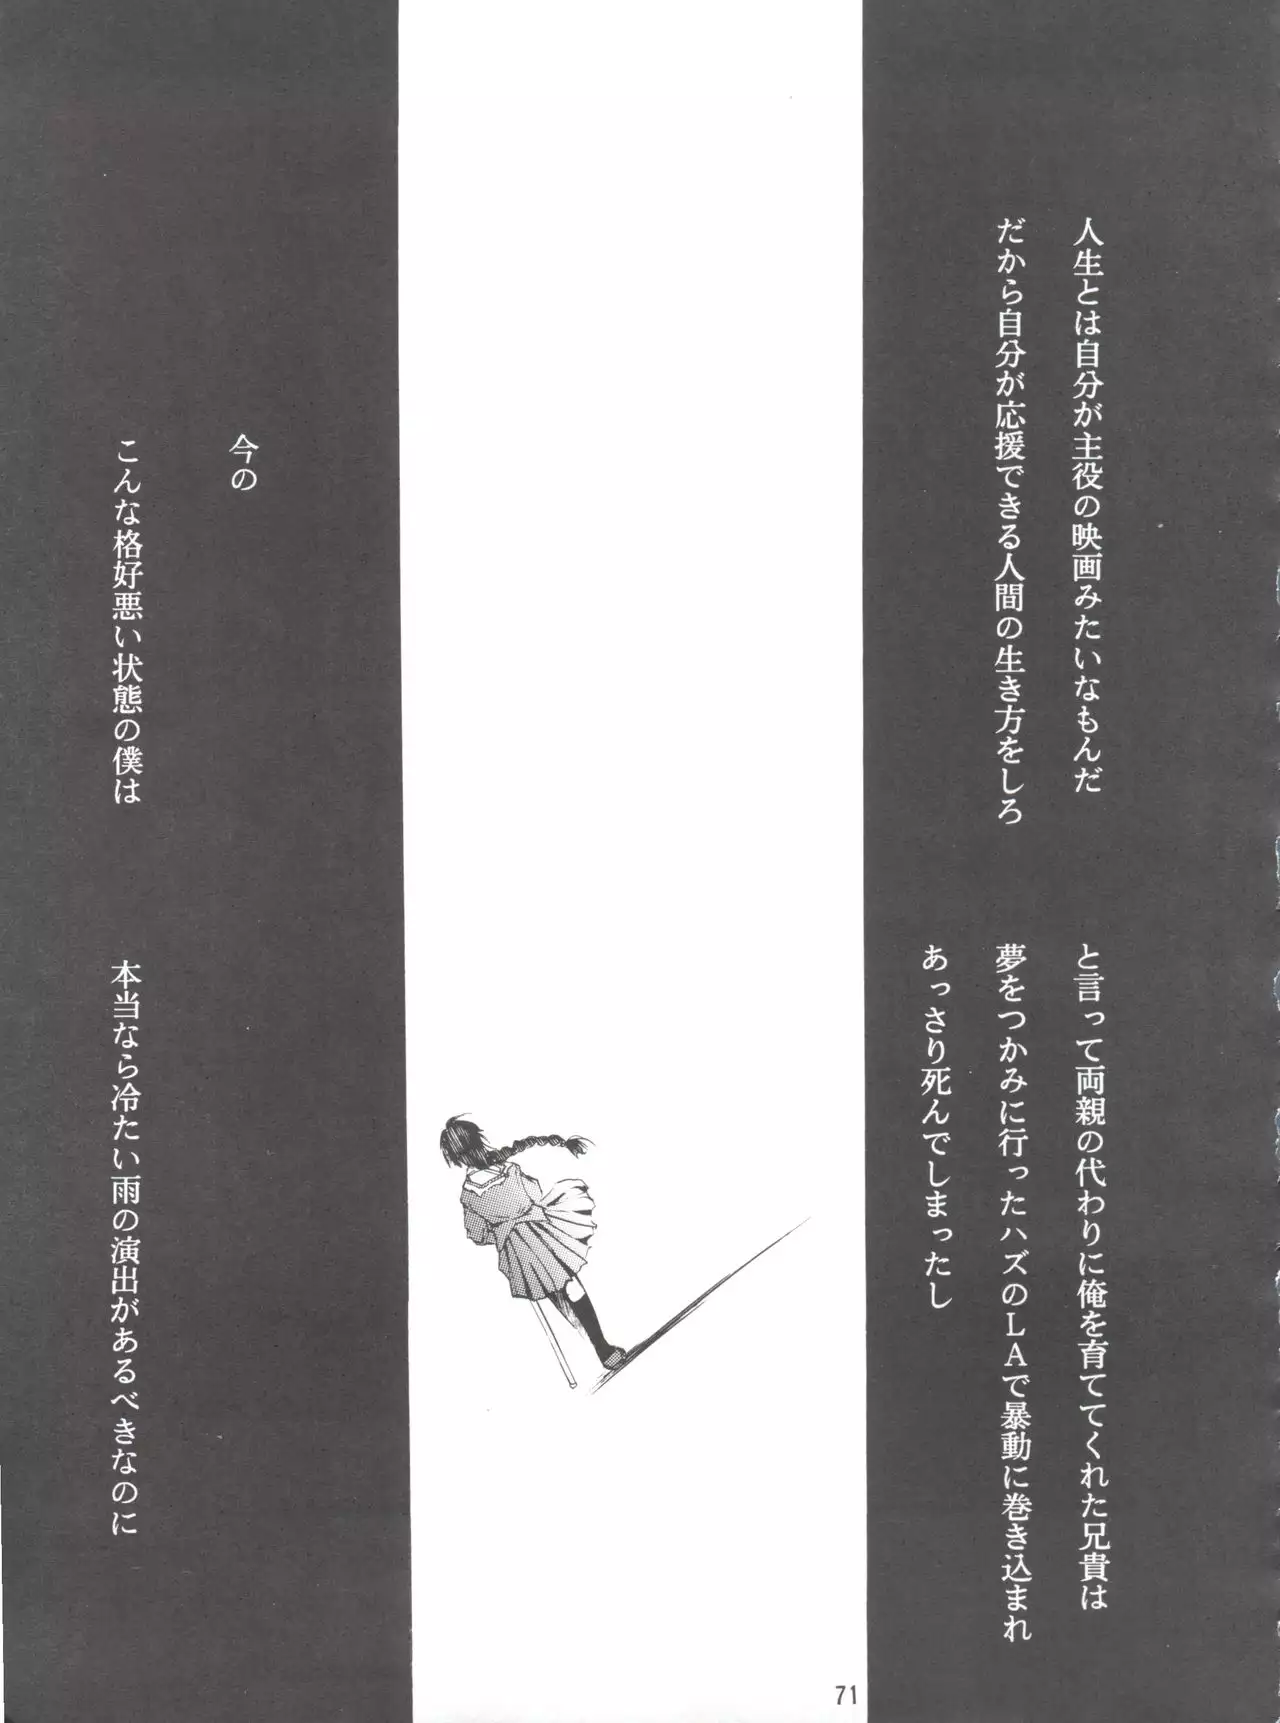 人生とは自分が主役の映画みたいなもんだ
だから自分が応援できる人間の生き方をしろ
と言って両親の代わりに俺を育ててくれた兄貴は
夢をつかみに行ったハズのLAで暴動に巻き込まれ
あっさり死んでしまったし
今の
こんな格好悪い状態の僕は
本当なら冷たい雨の演出があるべきなのに
71